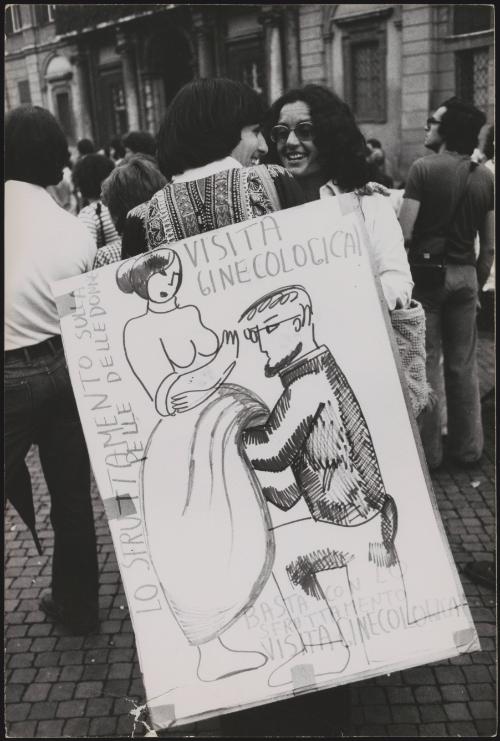 VISITA
GINECOLOGICA
LO SFRUTTAMENTO SULLA
PELLE DELLE DONNE
BASTA CON LO
SFRUTTAMENTO
VISITA GINECOLOGICA